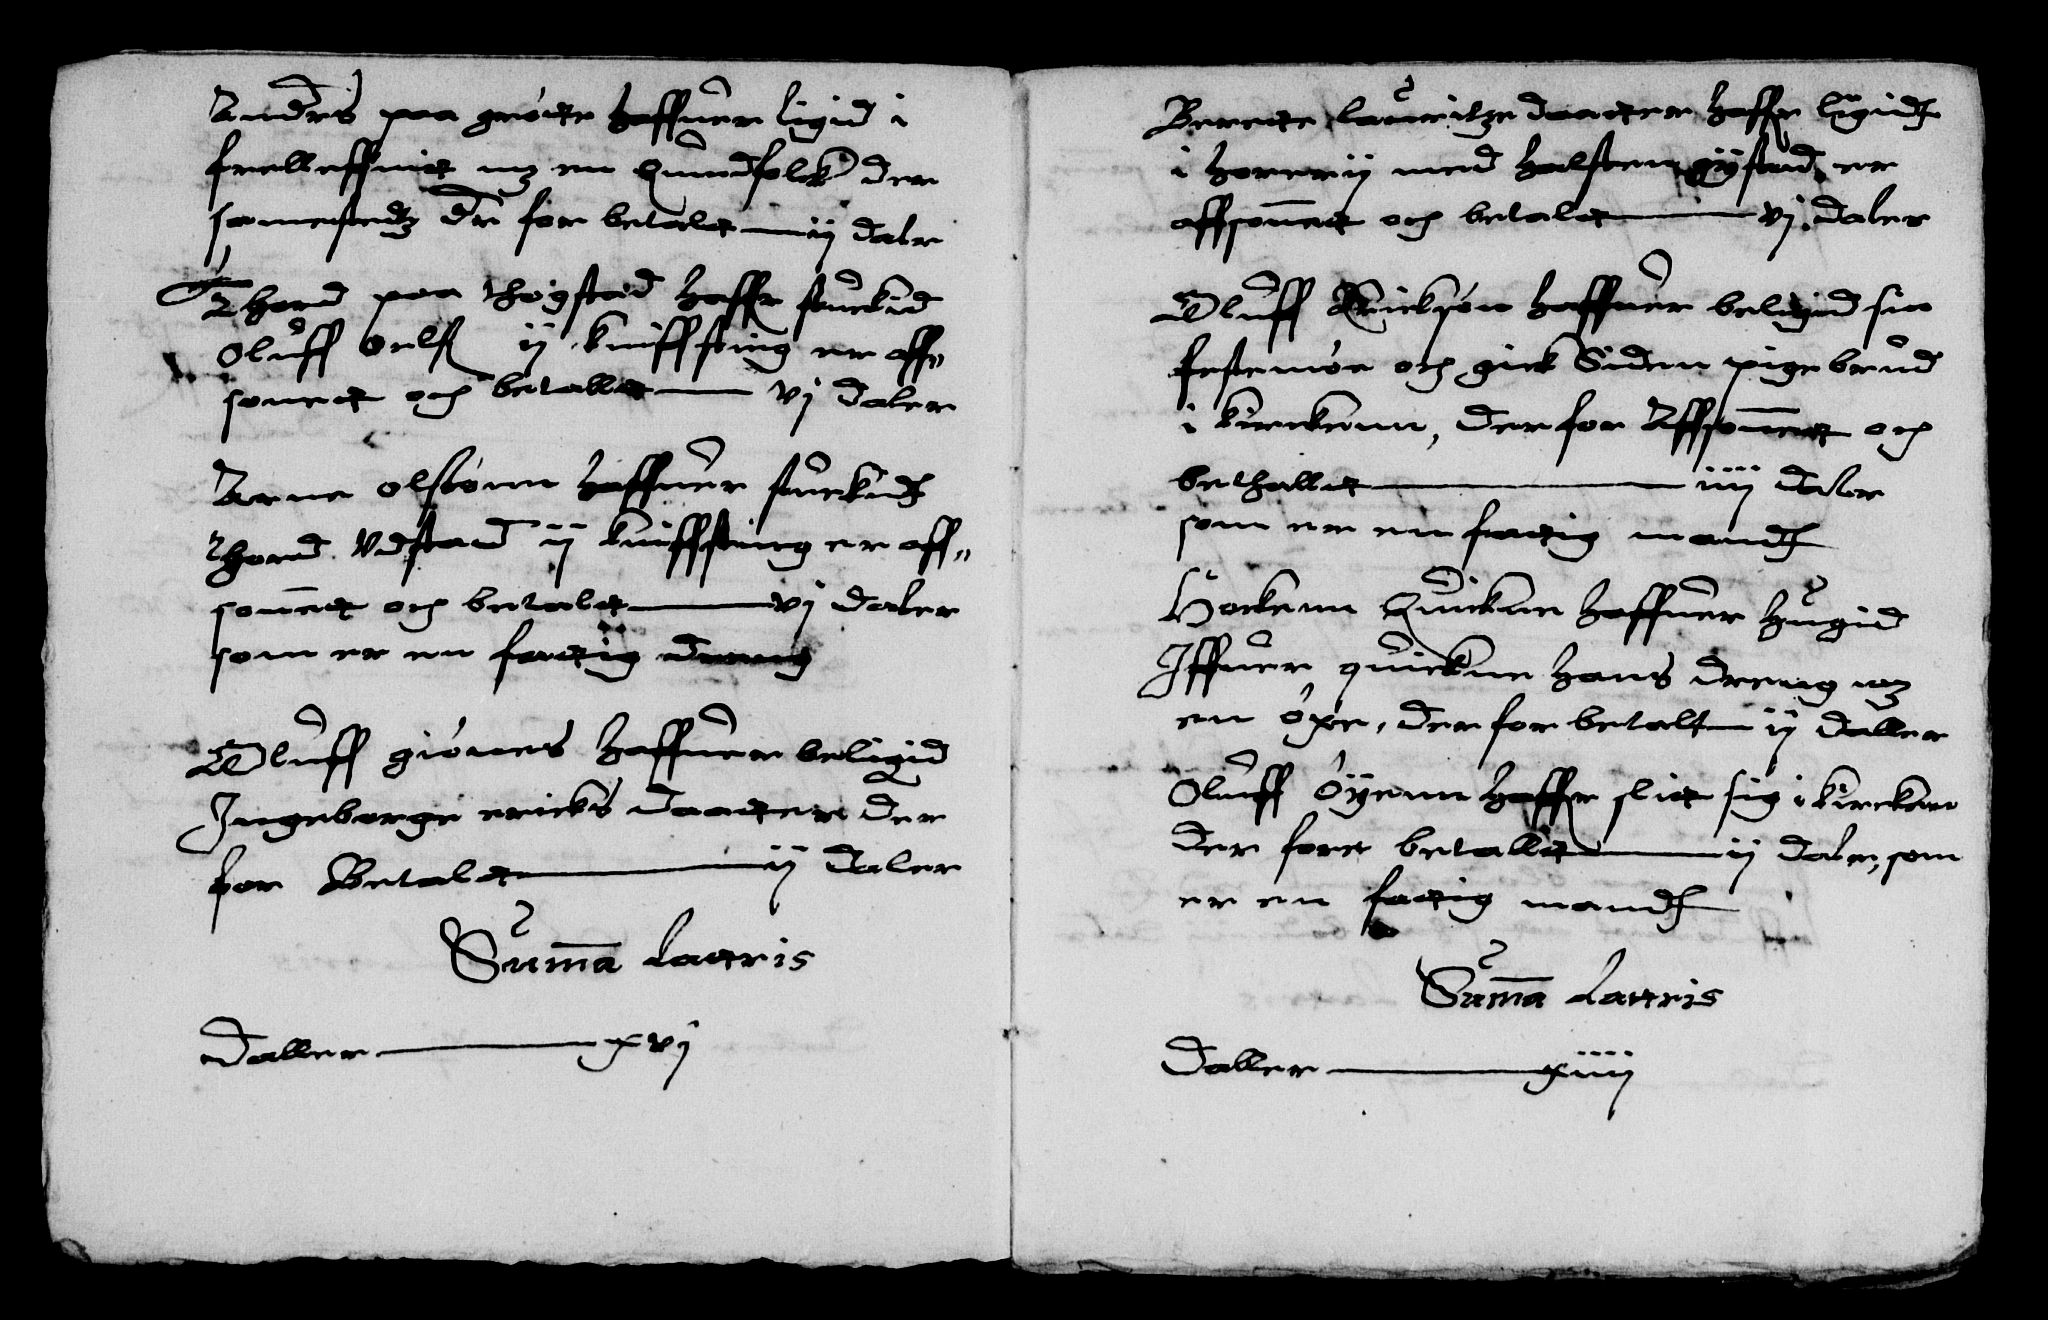 Anders paa grótte haffuer ligid i
frelleffnit mz en quindfolck der
sammestedtz der for betalet — ij daler
Thord paa thogstad haffr stuckid
Oluff Oelß ij kniffsting er aff-
sonet och betallet — vj daler
Arne olssónn haffuer stuckid
Thord Vdstad ij kniffsting er aff-
sonnet och betalet — vj daler
som er en fattig dreng
Oluff giónes haffuer beligid
Ingeborge ericks daatter der
for Betalet — ij daler
Summa Latteris
Daller — xvj
Berette lauritze daatter haffr ligid
i horerij med halsten gÿstad, er
affsonnet och betalet — vj daler
Oluff Erickßón haffuer beligid sin
festemóe och gick Siden pige brud
i kirckenn, der for Affsonnet och
bethallet — iiij daler
som er en fattig mand
Hockenn Quickne haffuer hugid
Iffuer quickne hans dreng mz
en óxe, der for betalt — ij daller
Oluff Óÿenn haffr slit sig i kircken
der foer betallit — ij daler, som
er en fattig mand
Summa Latteris
Daller — xiiij